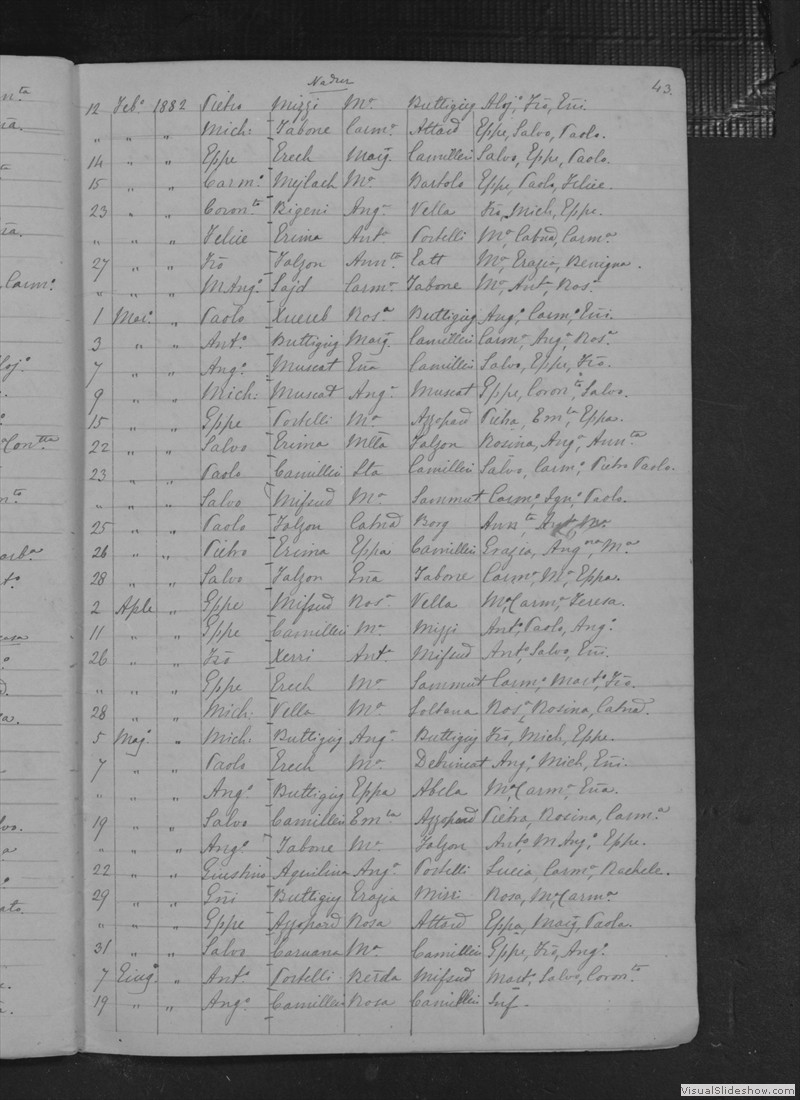 Nadur
43.
12 Feb.º 1882 Pietro Mizzi Mª Buttigieg Aloj.º Frõ, Eñi.
" " " Mich: Tabone Carmª Attard Eppe, Salvo, Paolo.
14 " " Eppe Erech Marg̃. Camilleri Salvo, Eppe, Paolo.
15 " " Carm.º Mejlach Mª Bartolo Eppe, Paolo, Felice.
23 " " Coron.to Bigeni Angª Vella Frõ, Mich, Eppe.
" " " Felice Erima Antª Portelli Mª Catnã, Carmª
27 " " Frõ Falzon Ann.ta Eatt Mª, Grazia, Benigna.
" " " MAng.º Sajd Carmª Tabone Mª, Antª, Rosª
1 Mar.º " Paolo Xuereb Rosª Buttigieg Ang.º, Carm.º, Eñi.
3 " " Ant.º Buttigieg Marg̃. Camilleri Carmª, Angª, Rosª
7 " " Ang.º Muscat Eña Camilleri Salvo, Eppe, Frõ.
9 " " Mich: Muscat Angª Muscat Eppe, Coron.to, Salvo.
15 " " Eppe Portelli Mª Azzopard Pietra, Em.ta, Eppa.
22 " " Salvo Erima Mtta Falzon Rosina, Angª, Ann.ta
23 " " Paolo Camilleri Sta Camilleri Salvo, Carm.º, Pietro Paolo.
" " " Salvo Mifsud Mª Sammut Carm.º, Ign.º, Paolo.
25 " " Paolo Falzon Catnã Borg Ann.ta, Antª, Mª
26 " " Pietro Erima Eppa Camilleri Grazia, Ang.na, Mª
28 " " Salvo Falzon Eña Tabone Carmª, Mª, Eppa.
2 Aple " Eppe Mifsud Rosª Vella Mª, Carmª, Teresa.
11 " " Eppe Camilleri Mª Mizzi Ant.º, Paolo, Ang.º
26 " " Frõ Xerri Antª Mifsud Ant.º, Salvo, Eñi.
" " " Eppe Erech Mª Sammut Carm.º, Mart.º, Frõ.
28 " " Mich: Vella Mª Soltana Rosª, Rosina, Catnã.
5 Mag.º " Mich: Buttigieg Angª Buttigieg Frõ, Mich, Eppe.
7 " " Paolo Erech Mª Debrincat Ang.º, Mich, Eñi.
" " " Ang.º Buttigieg Eppa Abela Mª, Carmª, Eña.
19 " " Salvo Camilleri Em.ta Azzopard Pietra, Rosina, Carmª
" " " Ang.º Tabone Mª Falzon Ant.º, MAng.º, Eppe.
22 " " Giustino Aquilina Angª Portelli Lucia, Carmª, Rachele.
29 " " Eñi Buttigieg Grazia Missi Rosa, Mª, Carmª
" " " Eppe Azzopard Rosa Attard Eppa, Marg̃, Paola.
31 " " Salvo Caruana Mª Camilleri Eppe, Frõ, Ang.º
7 Giug.º " Ant.º Portelli Berda Mifsud Mart.º, Salvo, Coron.to
19 " " Ang.º Camilleri Rosa Camilleri Inf.
VisualSlideshow.com